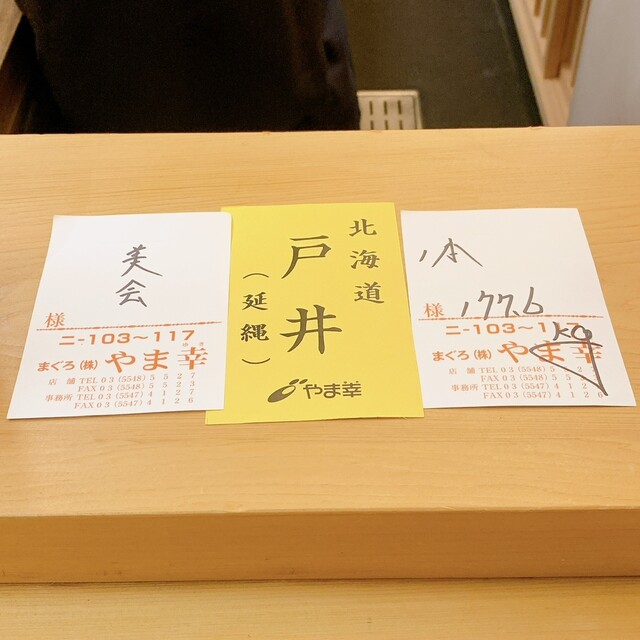 美会
様
ニ-103〜117
まぐろ(株)やま幸
ゆき
店 舗 TEL 03 (5548) 5 5 2 7
FAX 03 (5548) 5 5 2 3
事務所 TEL 03 (5547) 4 1 2 7
FAX 03 (5547) 4 1 2 6
北海道
戸井
(延縄)
やま幸
1本
様 177.6
kg
ニ-103〜1
まぐろ(株)やま幸
店 舗 TEL 03 (5548) 5
FAX 03 (5548) 5 5
事務所 TEL 03 (5547) 4 1 2
FAX 03 (5547) 4 1 2 6